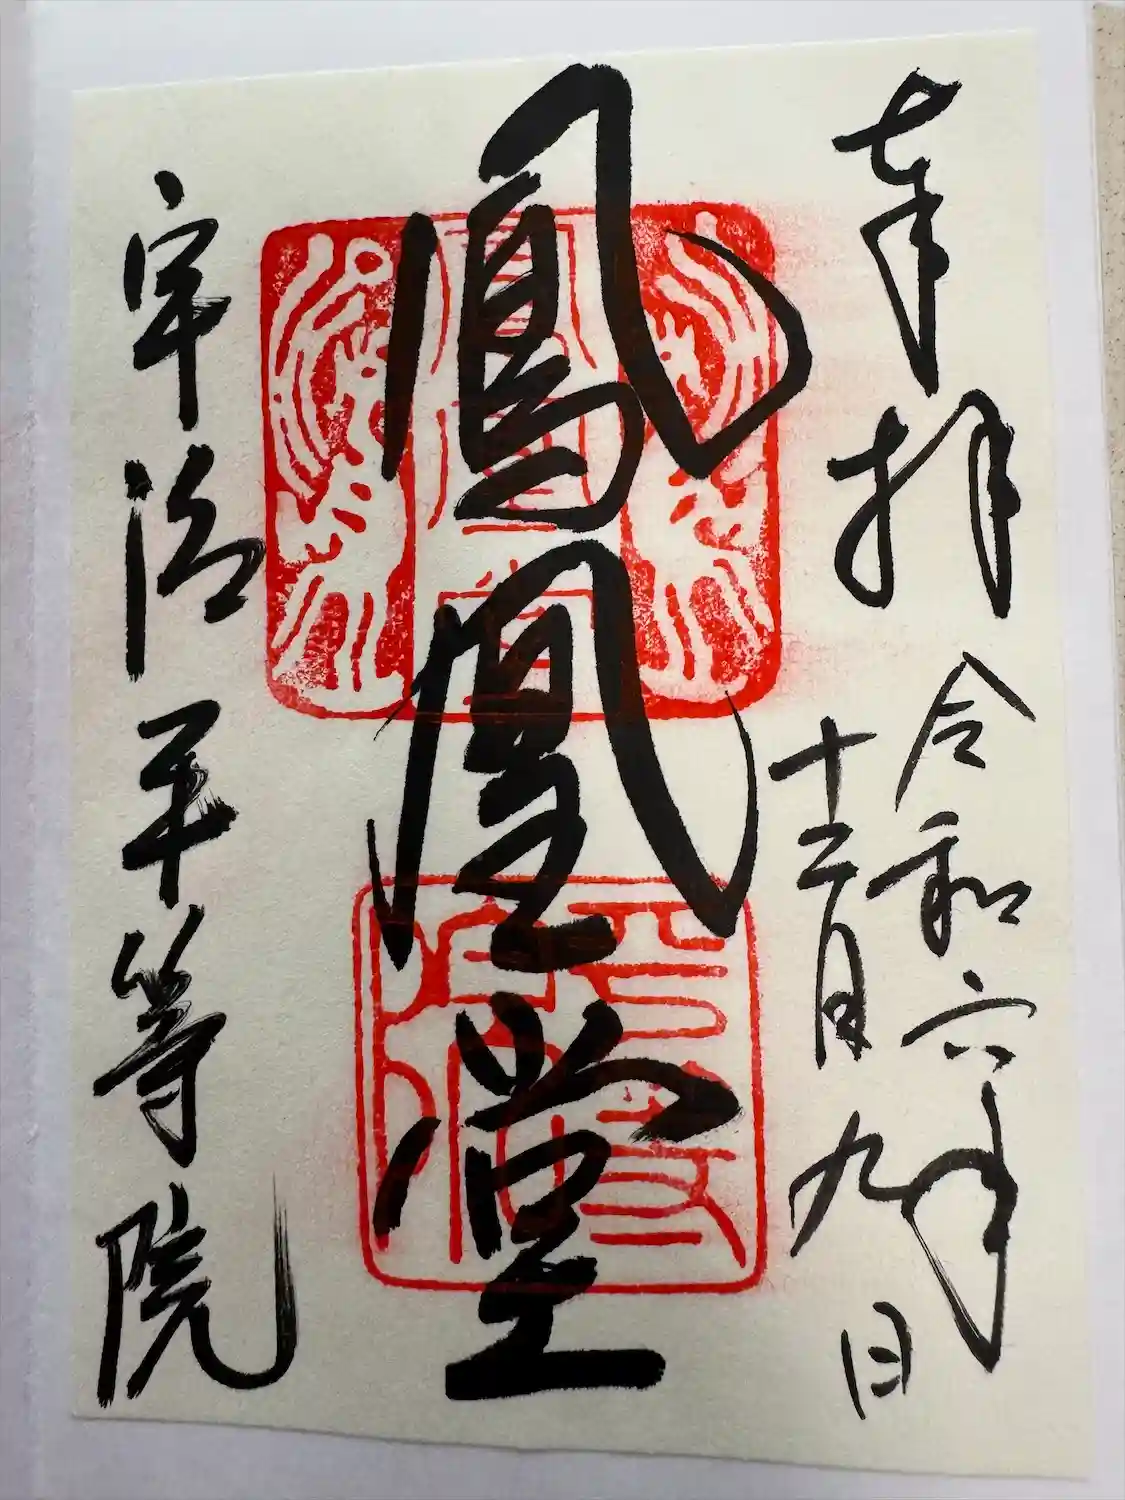 奉拝
令和六年
十二月九日
鳳凰堂
宇治平等院